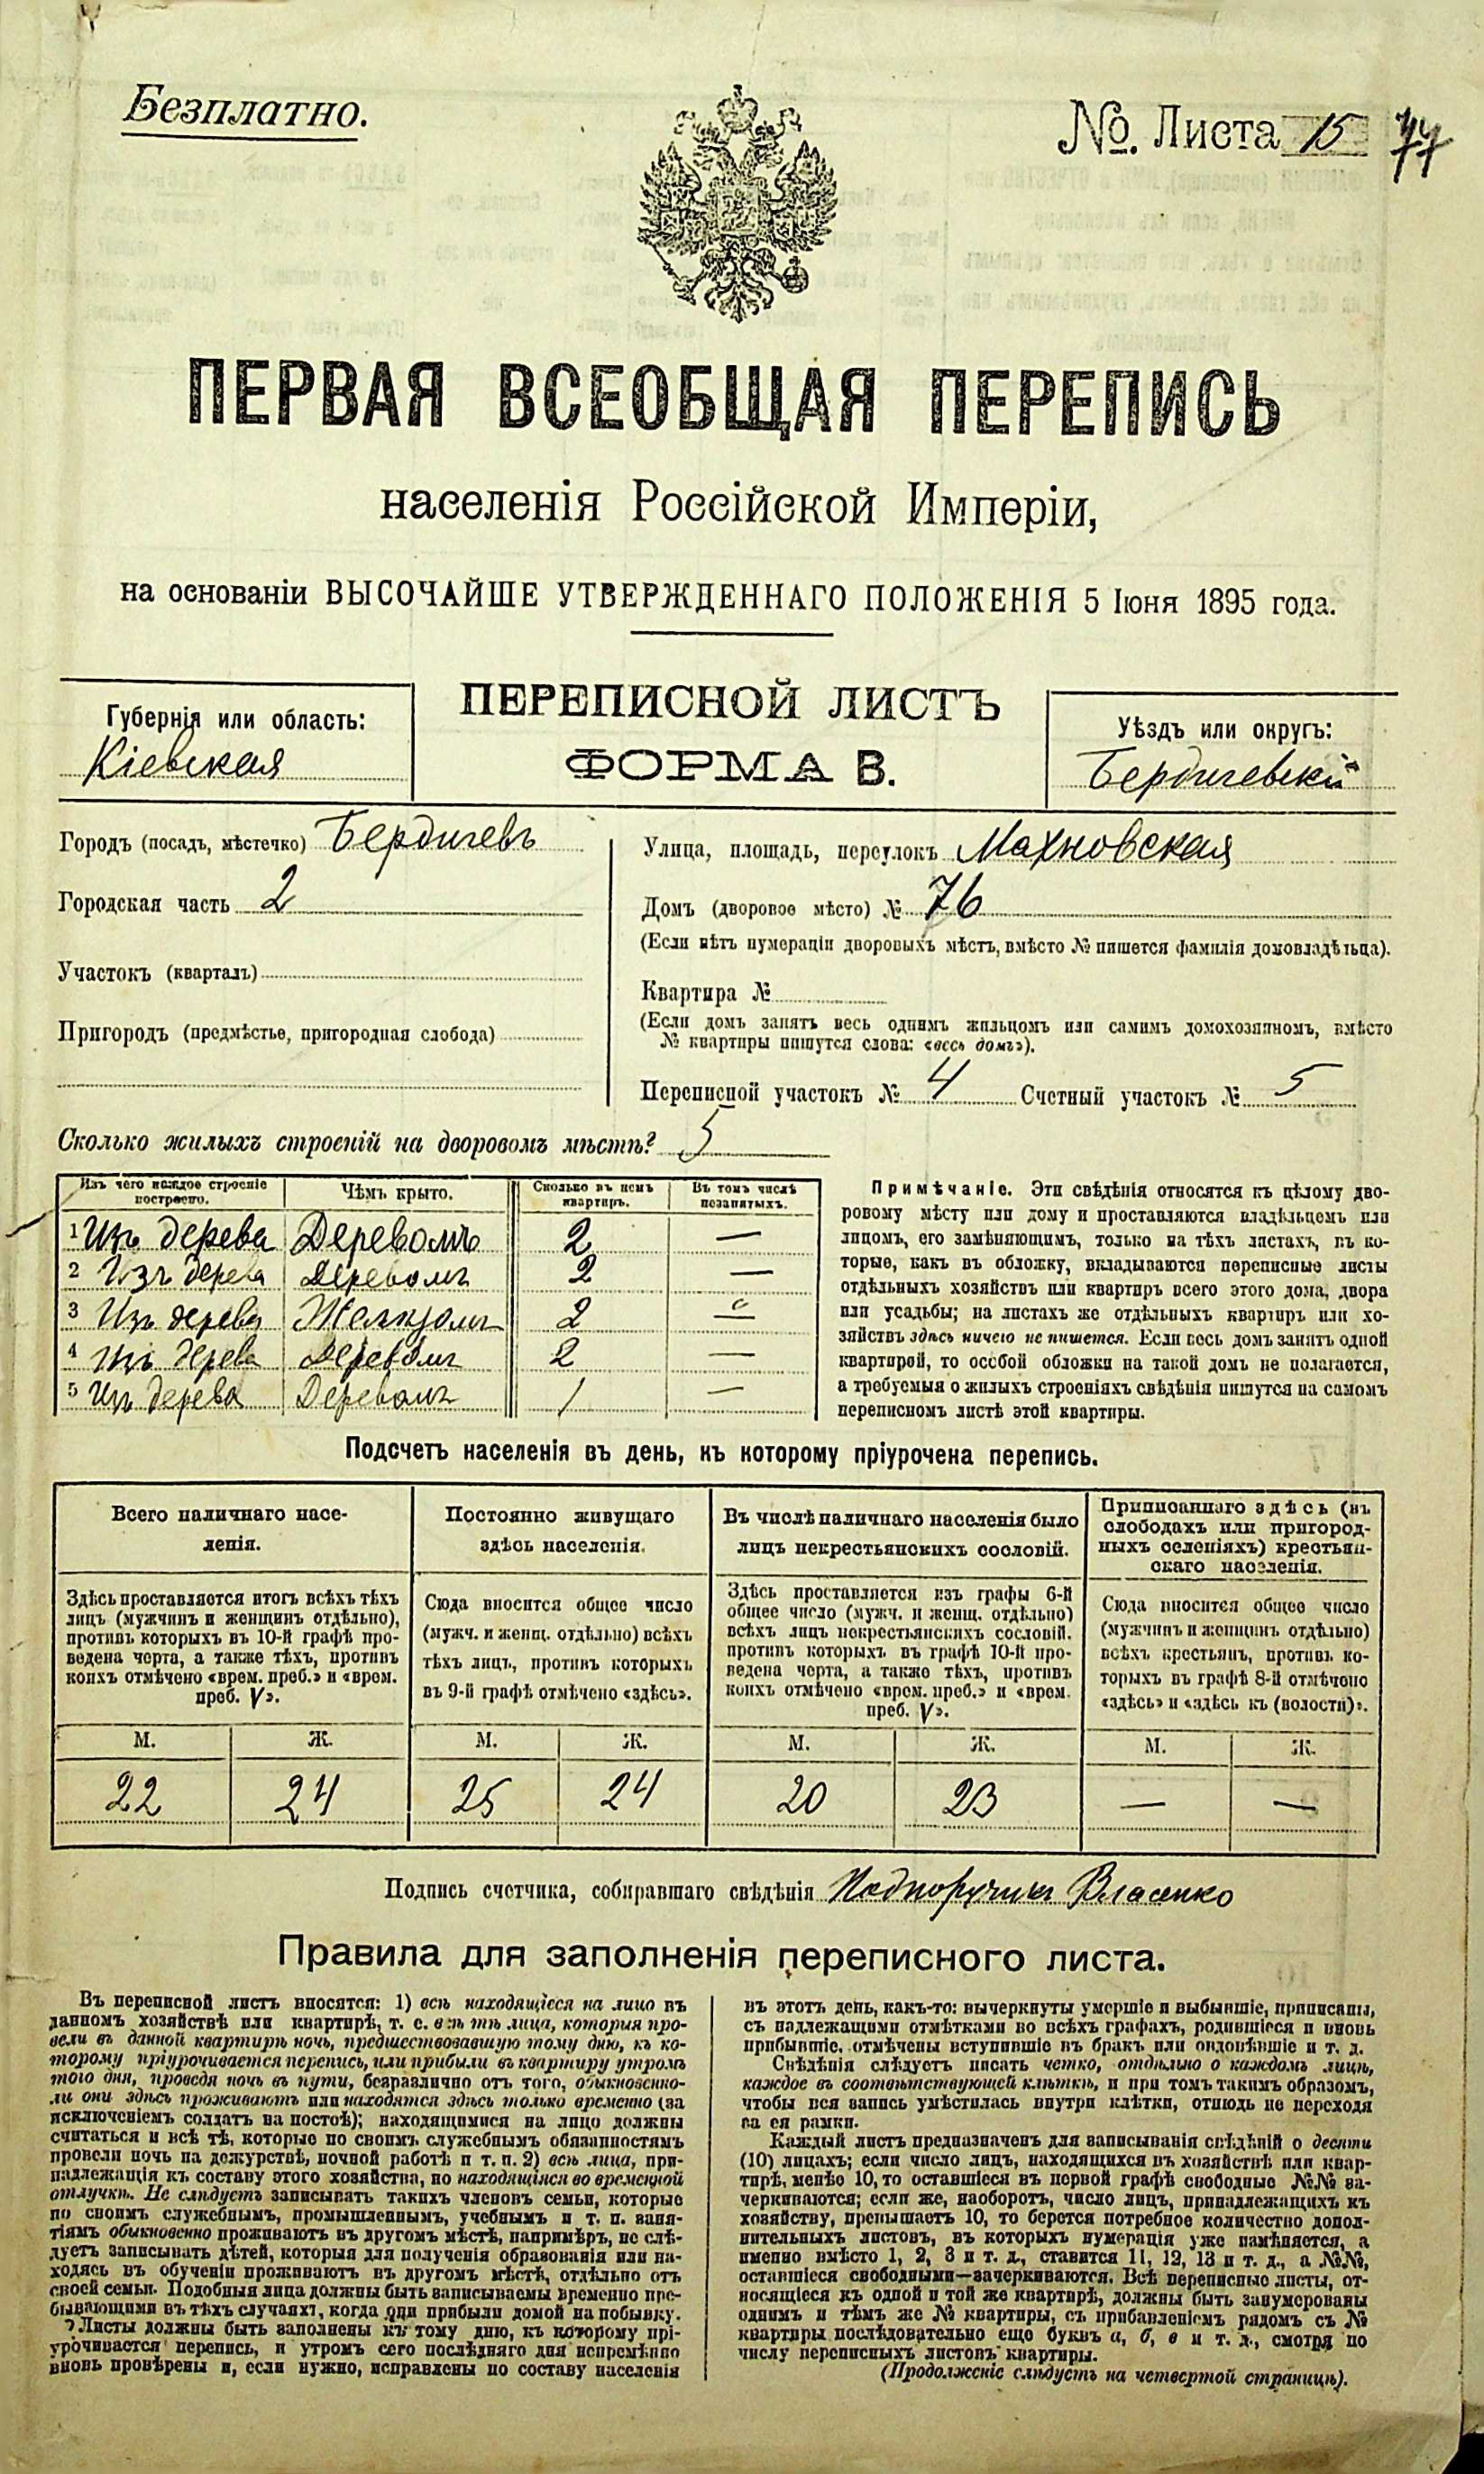 Безплатно.
№. Листа 15 77
ПЕРВАЯ ВСЕОБЩАЯ ПЕРЕПИСЬ
населенія Россійской Имперіи,
на основаніи ВЫСОЧАЙШЕ УТВЕРЖДЕННАГО ПОЛОЖЕНІЯ 5 Іюня 1895 года.
ПЕРЕПИСНОЙ ЛИСТЪ
ФОРМА В.
Губернія или область:
Кіевская
Уѣздъ или округъ:
Бердичевскій
Городъ (посадъ, мѣстечко) Бердичевъ
Городская часть 2
Участокъ (кварталъ)
Пригородъ (предмѣстье, пригородная слобода)
Улица, площадь, переулокъ Махновская
Домъ (дворовое мѣсто) № 76
(Если нѣтъ нумераціи дворовыхъ мѣстъ, вмѣсто № пишется фамилія домовладѣльца).
Квартира №
(Если домъ занятъ весь однимъ жильцомъ или самимъ домохозяиномъ, вмѣсто
№ квартиры пишутся слова: «весь домъ»).
Переписной участокъ № 4 Счетный участокъ № 5
Сколько жилыхъ строеній на дворовомъ мѣстѣ? 5
Изъ чего каждое строеніе построено. Чѣмъ крыто. Сколько въ немъ квартиръ. Въ томъ числѣ незанятыхъ.
1 Изъ дерева Деревомъ 2 —
2 Изъ дерева Деревомъ 2 —
3 Изъ дерева Желѣзомъ 2 —
4 Изъ дерева Деревомъ 2 —
5 Изъ дерева Деревомъ 1 —
Примѣчаніе. Эти свѣдѣнія относятся къ цѣлому дво-
ровому мѣсту или дому и проставляются владѣльцемъ или
лицомъ, его замѣняющимъ, только на тѣхъ листахъ, въ ко-
торые, какъ въ обложку, вкладываются переписные листы
отдѣльныхъ хозяйствъ или квартиръ всего этого дома, двора
или усадьбы; на листахъ же отдѣльныхъ квартиръ или хо-
зяйствъ здѣсь ничего не пишется. Если весь домъ занятъ одной
квартирой, то особой обложки на такой домъ не полагается,
а требуемыя о жилыхъ строеніяхъ свѣдѣнія пишутся на самомъ
переписномъ листѣ этой квартиры.
Подсчетъ населенія въ день, къ которому пріурочена перепись.
Всего наличнаго насе-
ленія.
Здѣсь проставляется итогъ всѣхъ тѣхъ
лицъ (мужчинъ и женщинъ отдѣльно),
противъ которыхъ въ 10-й графѣ про-
ведена черта, а также тѣхъ, противъ
коихъ отмѣчено «врем. преб.» и «врем.
преб. V».
М. Ж.
22 24
Постоянно живущаго
здѣсь населенія.
Сюда вносится общее число
(мужч. и женщ. отдѣльно) всѣхъ
тѣхъ лицъ, противъ которыхъ
въ 9-й графѣ отмѣчено «здѣсь».
М. Ж.
25 24
Въ числѣ наличнаго населенія было
лицъ некрестьянскихъ сословій.
Здѣсь проставляется изъ графы 6-й
общее число (мужч. и женщ. отдѣльно)
всѣхъ лицъ некрестьянскихъ сословій,
противъ которыхъ въ графѣ 10-й про-
ведена черта, а также тѣхъ, противъ
коихъ отмѣчено «врем. преб.» и «врем.
преб. V».
М. Ж.
20 23
Приписаннаго здѣсь (въ
слободахъ или пригород-
ныхъ селеніяхъ) крестьян-
скаго населенія.
Сюда вносится общее число
(мужчинъ и женщинъ отдѣльно)
всѣхъ крестьянъ, противъ ко-
торыхъ въ графѣ 8-й отмѣчено
«здѣсь» и «здѣсь къ (волости)».
М. Ж.
— —
Подпись счетчика, собиравшаго свѣдѣнія Подпоручикъ Власенко
Правила для заполненія переписного листа.
Въ переписной листъ вносятся: 1) всѣ находящіеся на лицо въ
данномъ хозяйствѣ или квартирѣ, т. е. всѣ тѣ лица, которыя про-
вели въ данной квартирѣ ночь, предшествовавшую тому дню, къ ко-
торому пріурочивается перепись, или прибыли въ квартиру утромъ
того дня, проведя ночь въ пути, безразлично отъ того, обыкновенно-
ли они здѣсь проживаютъ или находятся здѣсь только временно (за
исключеніемъ солдатъ на постоѣ); находящимися на лицо должны
считаться и всѣ тѣ, которые по своимъ служебнымъ обязанностямъ
провели ночь на дежурствѣ, ночной работѣ и т. п. 2) всѣ лица, при-
надлежащія къ составу этого хозяйства, но находящіяся во временной
отлучкѣ. Не слѣдуетъ записывать такихъ членовъ семьи, которые
по своимъ служебнымъ, промышленнымъ, учебнымъ и т. п. заня-
тіямъ обыкновенно проживаютъ въ другомъ мѣстѣ, напримѣръ, не слѣ-
дуетъ записывать дѣтей, которыя для полученія образованія или на-
ходясь въ обученіи проживаютъ въ другомъ мѣстѣ, отдѣльно отъ
своей семьи. Подобныя лица должны быть записываемы временно пре-
бывающими въ тѣхъ случаяхъ, когда они прибыли домой на побывку.
Листы должны быть заполнены къ тому дню, къ которому прі-
урочивается перепись, и утромъ сего послѣдняго дня непремѣнно
вновь провѣрены и, если нужно, исправлены по составу населенія
въ этотъ день, какъ-то: вычеркнуты умершіе и выбывшіе, приписаны,
съ надлежащими отмѣтками во всѣхъ графахъ, родившіеся и вновь
прибывшіе, отмѣчены вступившіе въ бракъ или овдовѣвшіе и т. д.
Свѣдѣнія слѣдуетъ писать четко, отдѣльно о каждомъ лицѣ,
каждое въ соотвѣтствующей клѣткѣ, и при томъ такимъ образомъ,
чтобы вся запись умѣстилась внутри клѣтки, отнюдь не переходя
за ея рамки.
Каждый листъ предназначенъ для записыванія свѣдѣній о десяти
(10) лицахъ; если число лицъ, находящихся въ хозяйствѣ или квар-
тирѣ, менѣе 10, то оставшіеся въ первой графѣ свободные №№ за-
черкиваются; если же, наоборотъ, число лицъ, принадлежащихъ къ
хозяйству, превышаетъ 10, то берется потребное количество допол-
нительныхъ листовъ, въ которыхъ нумерація уже измѣняется, а
именно вмѣсто 1, 2, 3 и т. д., ставится 11, 12, 13 и т. д., а №№,
оставшіеся свободными—зачеркиваются. Всѣ переписные листы, от-
носящіеся къ одной и той же квартирѣ, должны быть занумерованы
однимъ и тѣмъ же № квартиры, съ прибавленіемъ рядомъ съ №
квартиры послѣдовательно еще буквъ а, б, в и т. д., смотря по
числу переписныхъ листовъ квартиры.
(Продолженіе слѣдуетъ на четвертой страницѣ).